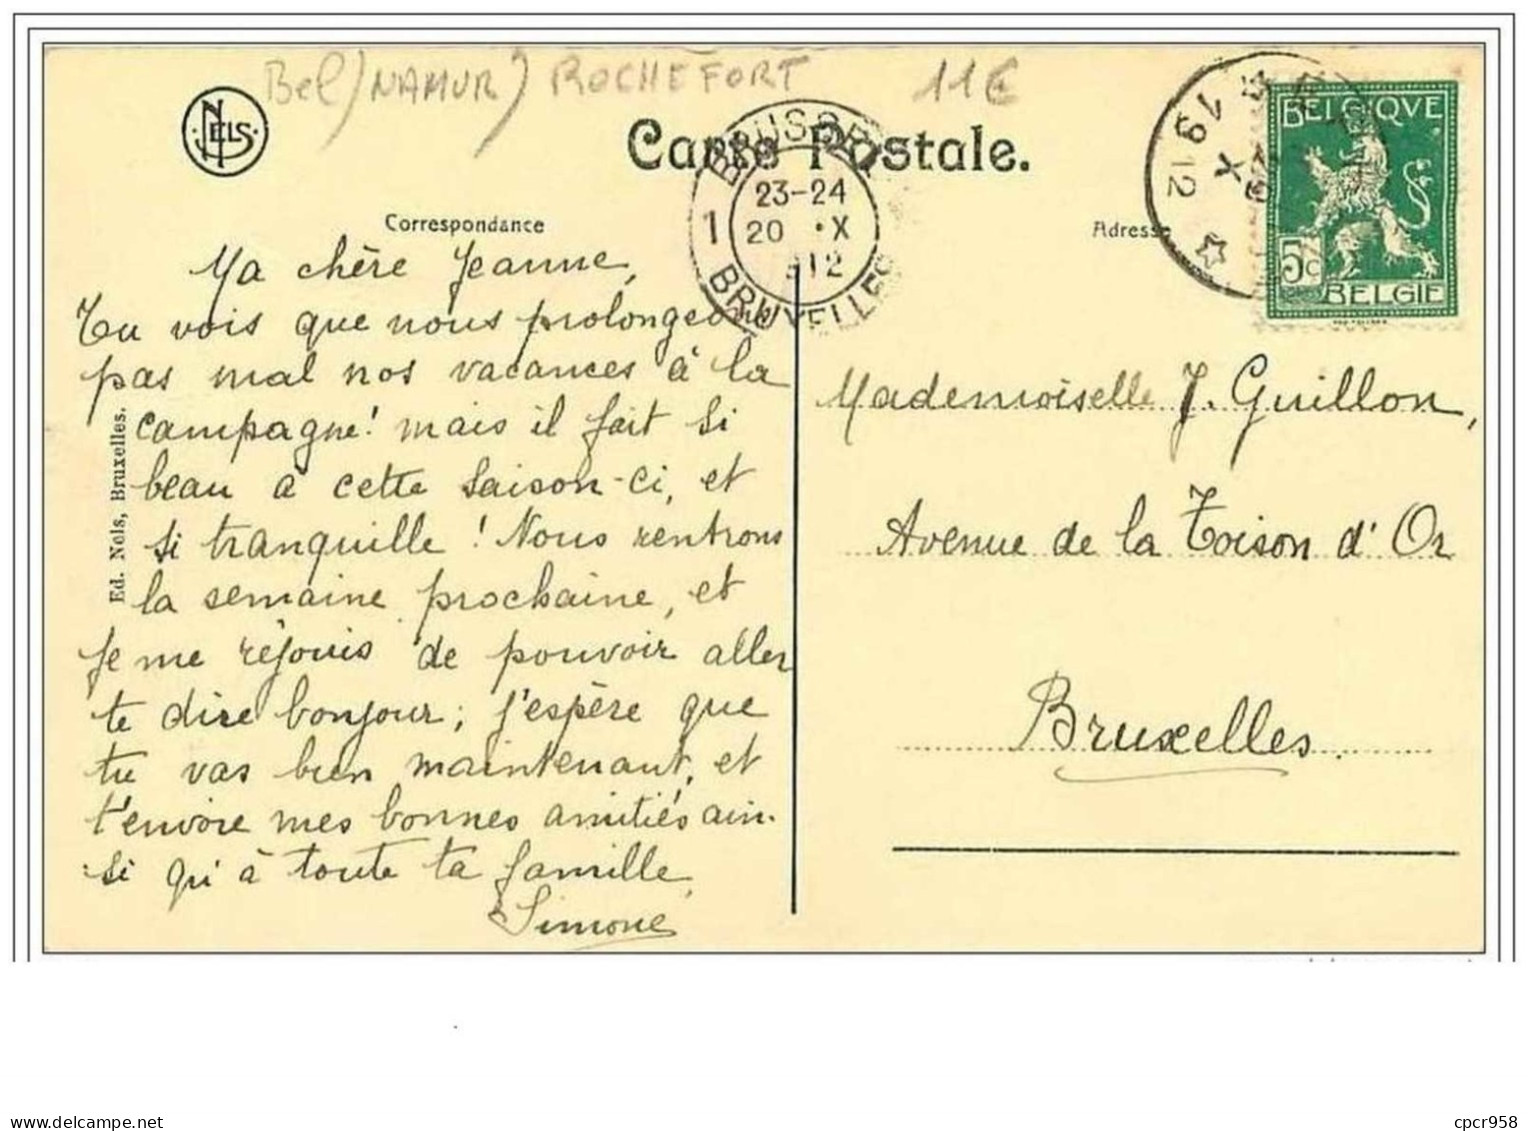 Bel) NAMUR) ROCHEFORT 11€
NELS
Carte Postale.
BRUXELLES
23-24
1 20 •X
1912
BRUXELLES
X
1912
BELGIQVE
5c
BELGIE
Correspondance
Adresse
Ma chère Jeanne,
Tu vois que nous prolongeons
pas mal nos vacances à la
campagne! mais il fait si
beau à cette saison-ci, et
si tranquille! Nous rentrons
la semaine prochaine, et
je me réjouis de pouvoir aller
te dire bonjour; j'espère que
tu vas bien maintenant, et
t'envoie mes bonnes amitiés ain-
si qu'à toute ta famille,
Simone
Ed. Nels, Bruxelles.
Mademoiselle J. Guillon,
Avenue de la Toison d'Or
Bruxelles.
cpcr958